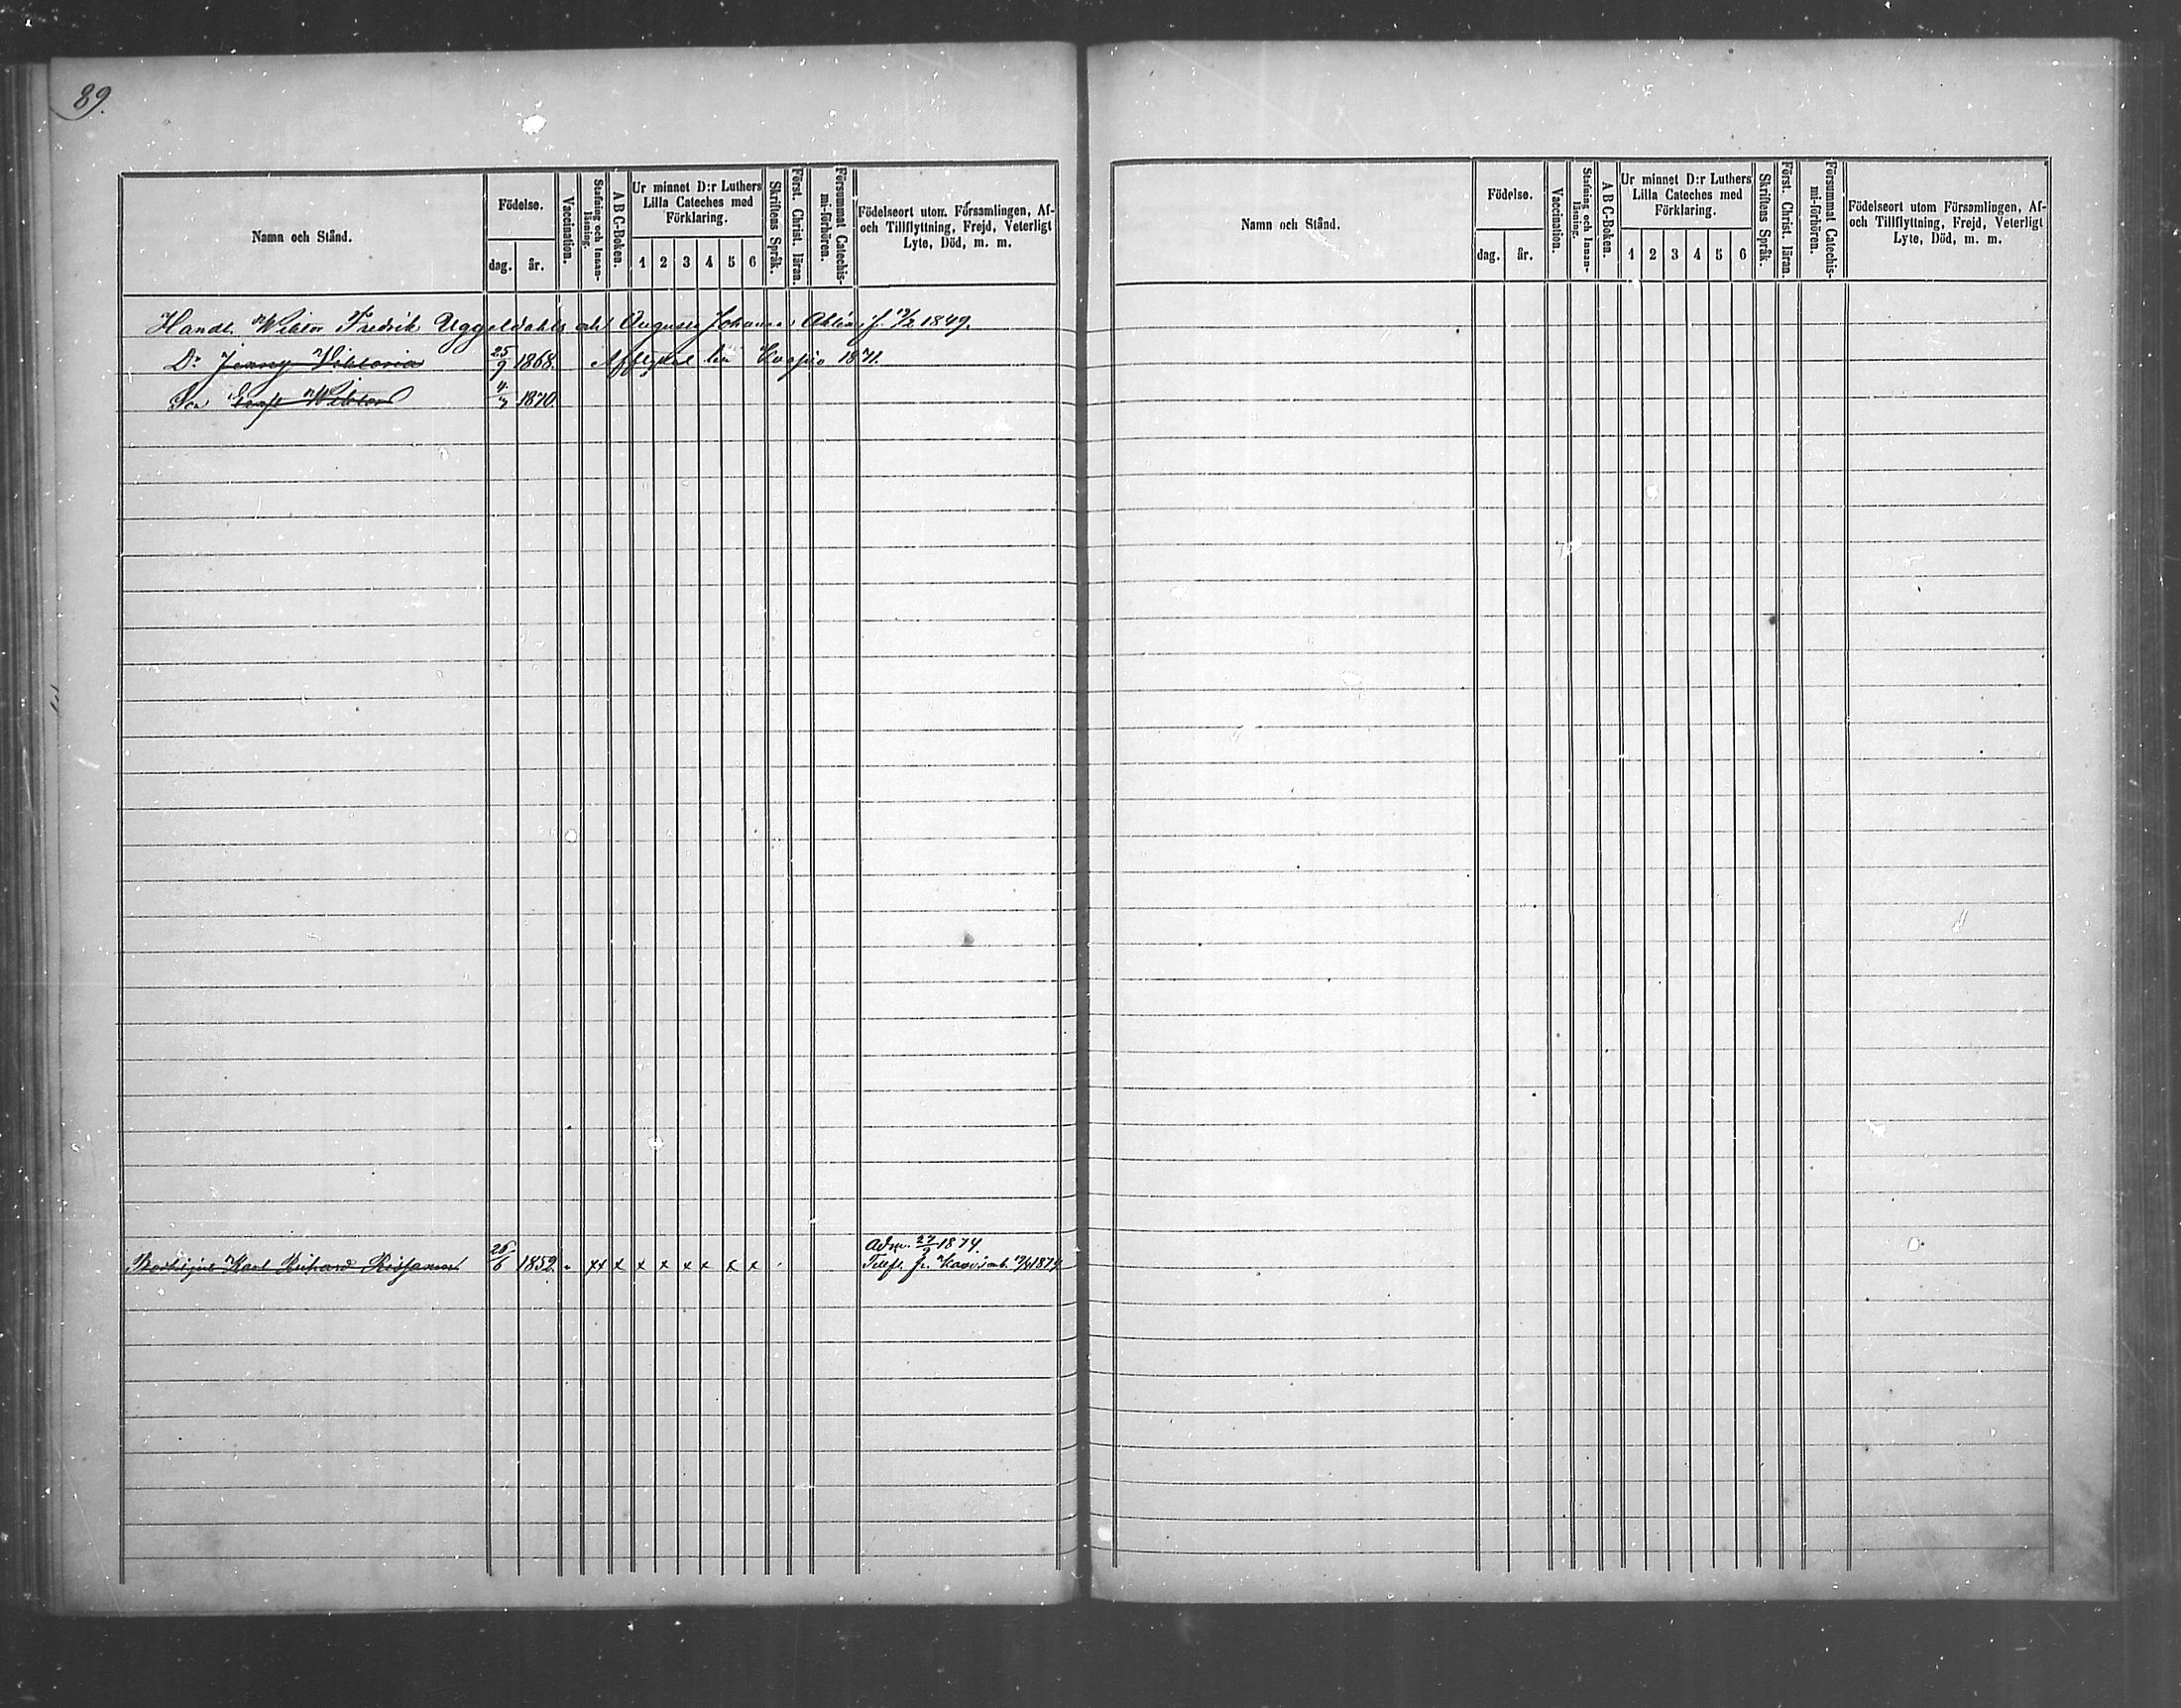 89.
Namn och Stånd.
Födelse.
dag.
år.
Vaccination.
Stafning och Innan-
läsning.
A B C-Boken.
Ur minnet D:r Luthers
Lilla Cateches med
Förklaring.
1 2 3 4 5 6
Skriftens Språk.
Först. Christ. läran.
Försummat Catechis-
mi-förhören.
Födelseort utom Församlingen, Af-
och Tillflyttning, Frejd, Veterligt
Lyte, Död, m. m.
Handl. Wiktor Fredrik Uggeldahls och Augusta Johanna Ahlins f. 1849.
Dr Jenny Wiktoria 25/9 1868. Afflyttat till Kuopio 1871.
Son Ernst Wiktor 4/7 1870.
Adm. 27/9 1874.
Karl Richard Reissanen 26/6 1852. " xx x x x x x x x Tillfl. fr. 1874
Namn och Stånd.
Födelse.
dag.
år.
Vaccination.
Stafning och Innan-
läsning.
A B C-Boken.
Ur minnet D:r Luthers
Lilla Cateches med
Förklaring.
1 2 3 4 5 6
Skriftens Språk.
Först. Christ. läran.
Försummat Catechis-
mi-förhören.
Födelseort utom Församlingen, Af-
och Tillflyttning, Frejd, Veterligt
Lyte, Död, m. m.